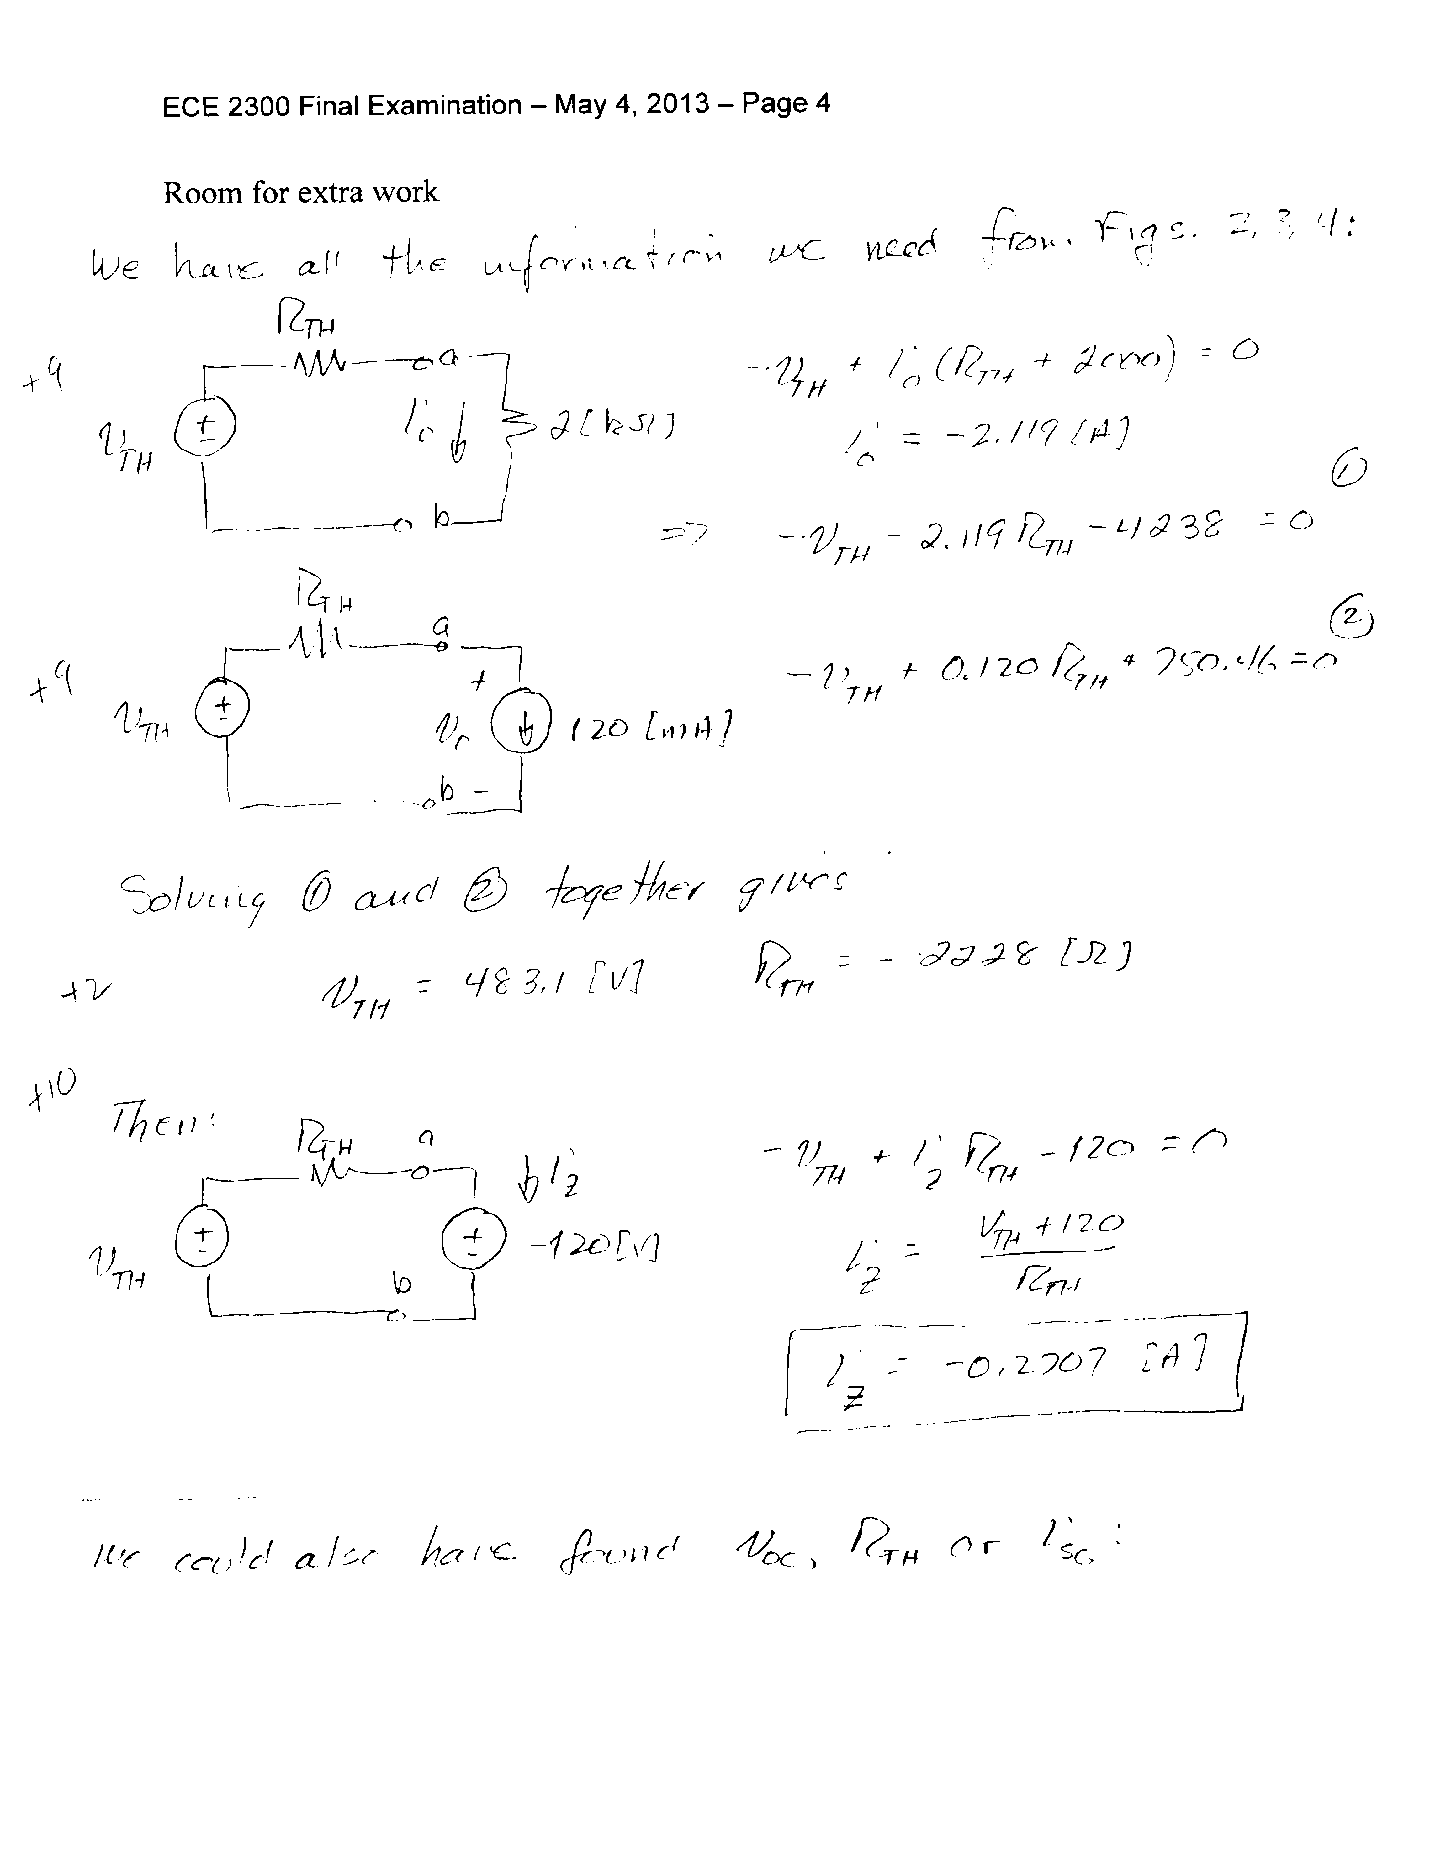 ECE 2300 Final Examination – May 4, 2013 – Page 4
Room for extra work
We have all the information we need from Figs. 2, 3, 4:
+9
R_TH
a
v_TH
+
-
i_o
2[kΩ]
b
-v_TH + i_o (R_TH + 2000) = 0
i_o = -2.119 [A]
⇒ -v_TH - 2.119 R_TH - 4238 = 0 ①
+9
R_TH
a
v_TH
+
+
v_r
120 [mA]
b -
-v_TH + 0.120 R_TH + 750.46 = 0 ②
Solving ① and ② together gives
+2
v_TH = 483.1 [V] R_TH = -2228 [Ω]
+10
Then:
R_TH
a
i_z
v_TH
+
-
+
-
-120[V]
b
-v_TH + i_z R_TH - 120 = 0
i_z = (v_TH + 120) / R_TH
i_z = -0.2707 [A]
We could also have found v_oc, R_TH or i_sc: